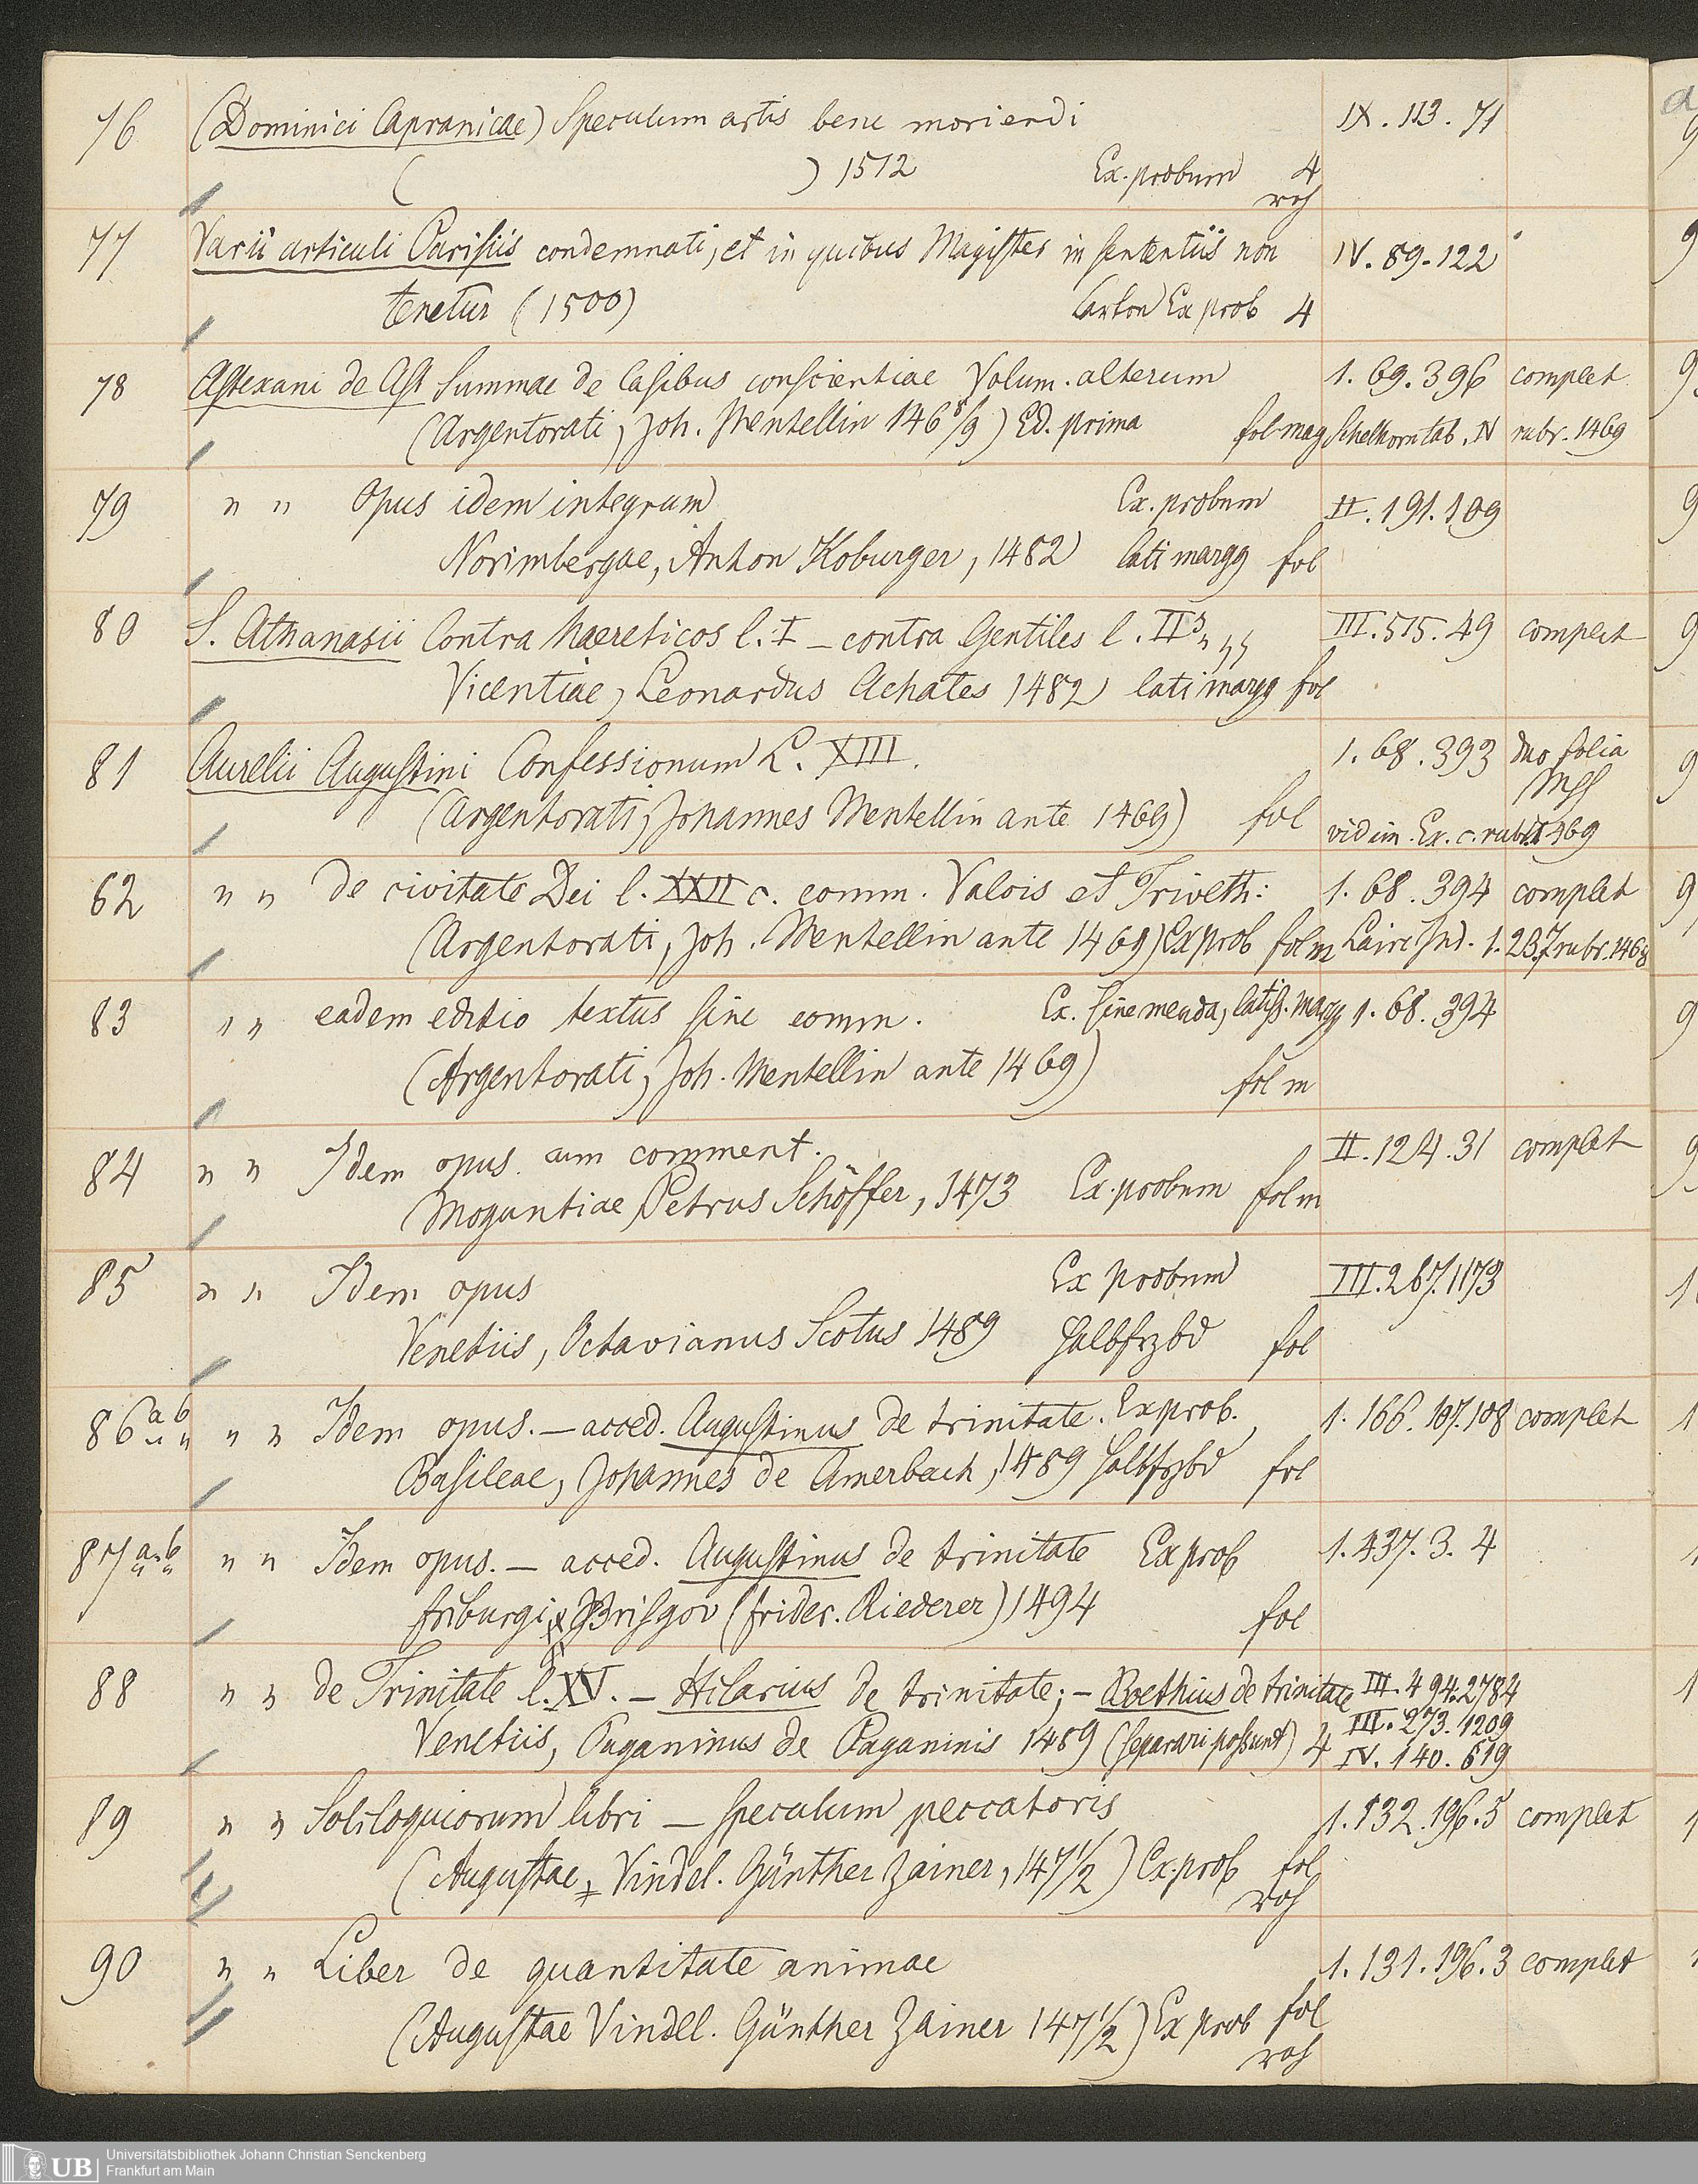 76 (Dominici Capranicae) Speculum artis bene moriendi IX. 113. 71
( ) 1512 Ex. probum 4
roh
77 Varii articuli Parisiis condemnati, et in quibus Magister in sententiis non IV. 89. 122
tenetur (1500) Carton Ex prob 4
78 Astexani de Ast Summae de Casibus conscientiae Volum. alterum 1. 69. 396 complet
(Argentorati, Joh. Mentellin 1468/9) Ed. prima fol mag Schelhorn tab. IV rubr. 1469
79 " " Opus idem integrum Ex. probum II. 191. 109
Norimbergae, Anton Koburger, 1482 lati margg fol
80 S. Athanasii Contra haereticos l. I – contra Gentiles l. II III. 515. 49 complet
Vicentiae, Leonardus Achates 1482 lati margg fol
81 Aurelii Augustini Confessionum L. XIII. 1. 68. 393 duo folia
Mss
(Argentorati, Johannes Mentellin ante 1469) fol vidim. Ex. c. rubr. 1469
62 " " de civitate Dei l. XXII c. comm. Valois et Triveth: 1. 68. 394 complet
(Argentorati, Joh. Mentellin ante 1469) Ex prob fol m Laire Ind. 1. 23. 7 rubr. 1468
83 " " eadem editio textus sine comm. Ex. sine menda, latiss. margg 1. 68. 394
(Argentorati, Joh. Mentellin ante 1469) fol m
84 " " Idem opus cum comment. II. 124. 31 complet
Moguntiae Petrus Schöffer, 1473 Ex. probum fol m
85 " " Idem opus Ex probum III. 267. 1173
Venetiis, Octavianus Scotus 1489 Halbfrzbd fol
86 a b " " Idem opus. – acced. Augustinus de trinitate. Ex prob. 1. 166. 107. 108 complet
Basileae, Johannes de Amerbach, 1489 Halbfrzbd fol
87 a b " " Idem opus. – acced. Augustinus de trinitate Ex prob 1. 437. 3. 4
Friburgi Brisgov (Frider. Riederer) 1494 fol
88 " " de Trinitate l. XV. – Hilarius de trinitate; – Boethius de trinitate III. 494. 2784
III. 273. 1209
Venetiis, Paganinus de Paganinis 1489 (separari possunt) 4 IV. 140. 619
89 " " Soliloquiorum libri – speculum peccatoris 1. 132. 196. 5 complet
(Augustae Vindel. Günther Zainer, 1471/2) Ex. prob fol
roh
90 " " Liber de quantitate animae 1. 131. 196. 3 complet
(Augustae Vindel. Günther Zainer 1471/2) Ex prob fol
roh
UB Universitätsbibliothek Johann Christian Senckenberg
Frankfurt am Main